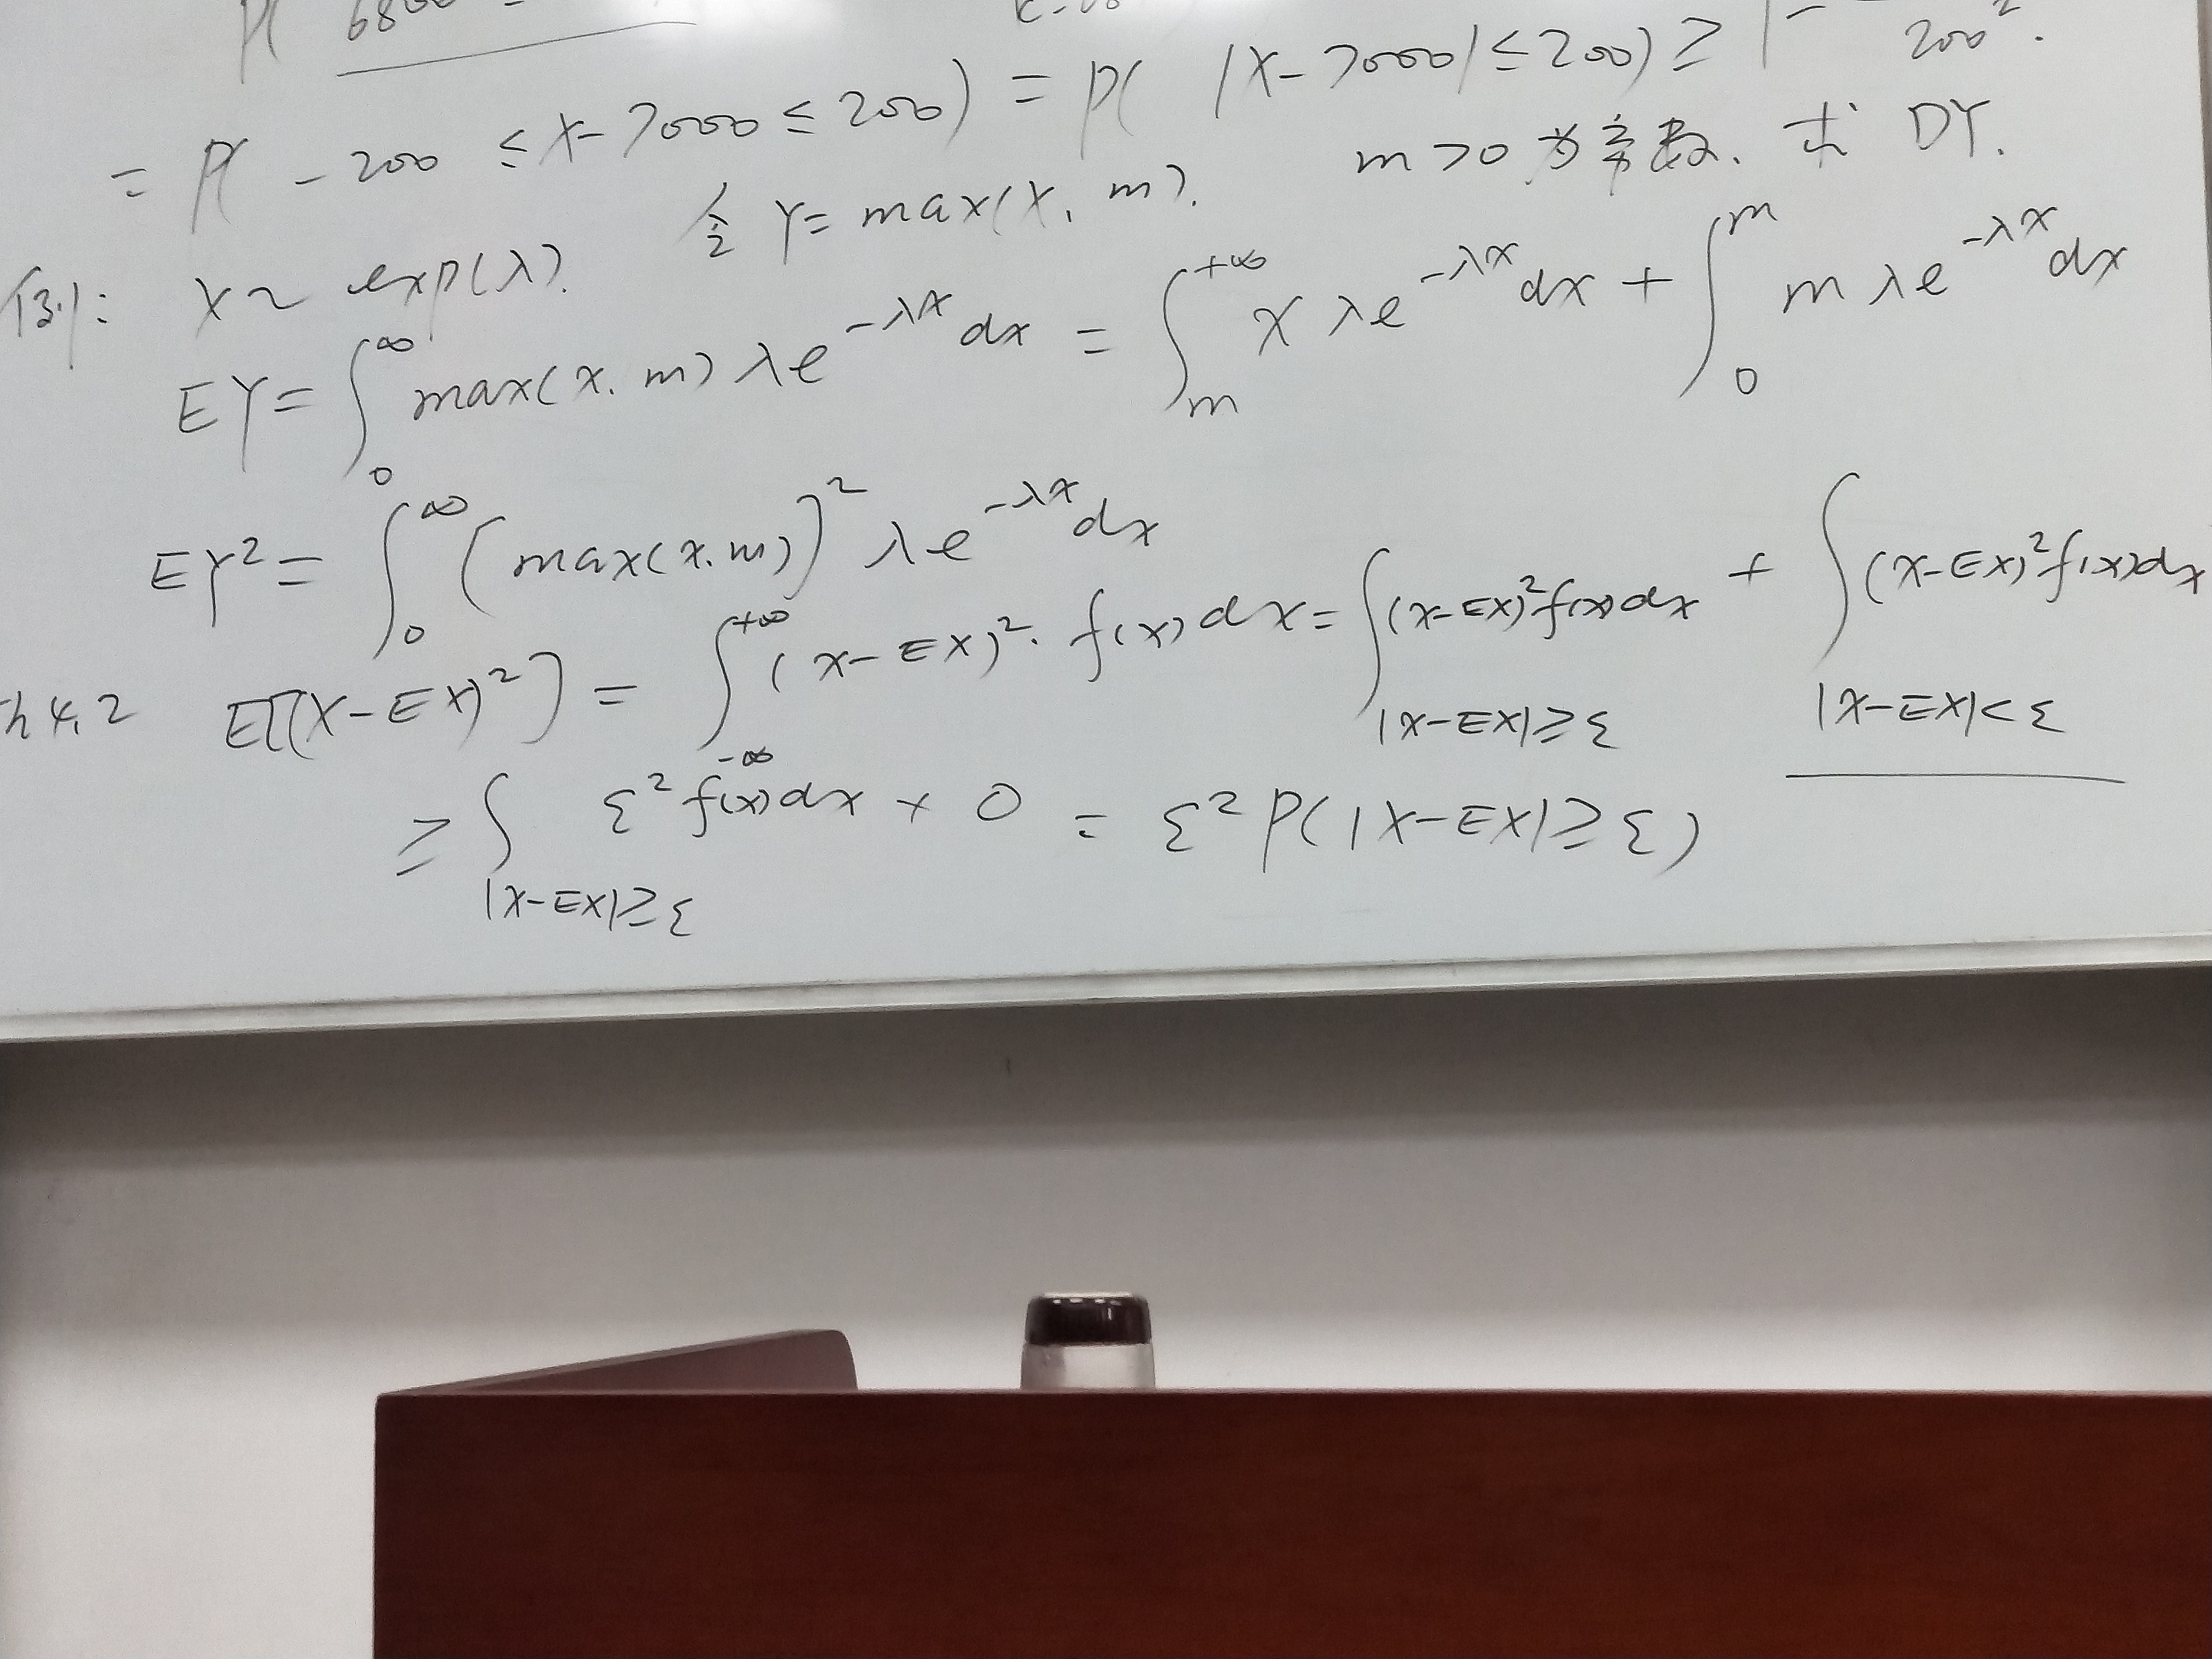 P( 6800
= P( -200 ≤ X-7000 ≤ 200) = P( |X-7000| ≤ 200) ≥ 1- 200².
例: X~ exp(λ). 令 Y= max(X, m). m>0 为常数. 求 DY.
EY= ∫₀^∞ max(x.m) λe^{-λx} dx = ∫_m^{+∞} x λe^{-λx} dx + ∫₀^m m λe^{-λx} dx
EY²= ∫₀^∞ (max(x.m))² λe^{-λx} dx
Th 4.2 E[(X-EX)²] = ∫_{-∞}^{+∞} (x-EX)². f(x) dx = ∫_{|x-EX|≥ε} (x-EX)² f(x) dx + ∫_{|x-EX|<ε} (x-EX)² f(x) dx
≥ ∫_{|x-EX|≥ε} ε² f(x) dx + 0 = ε² P(|X-EX|≥ε)